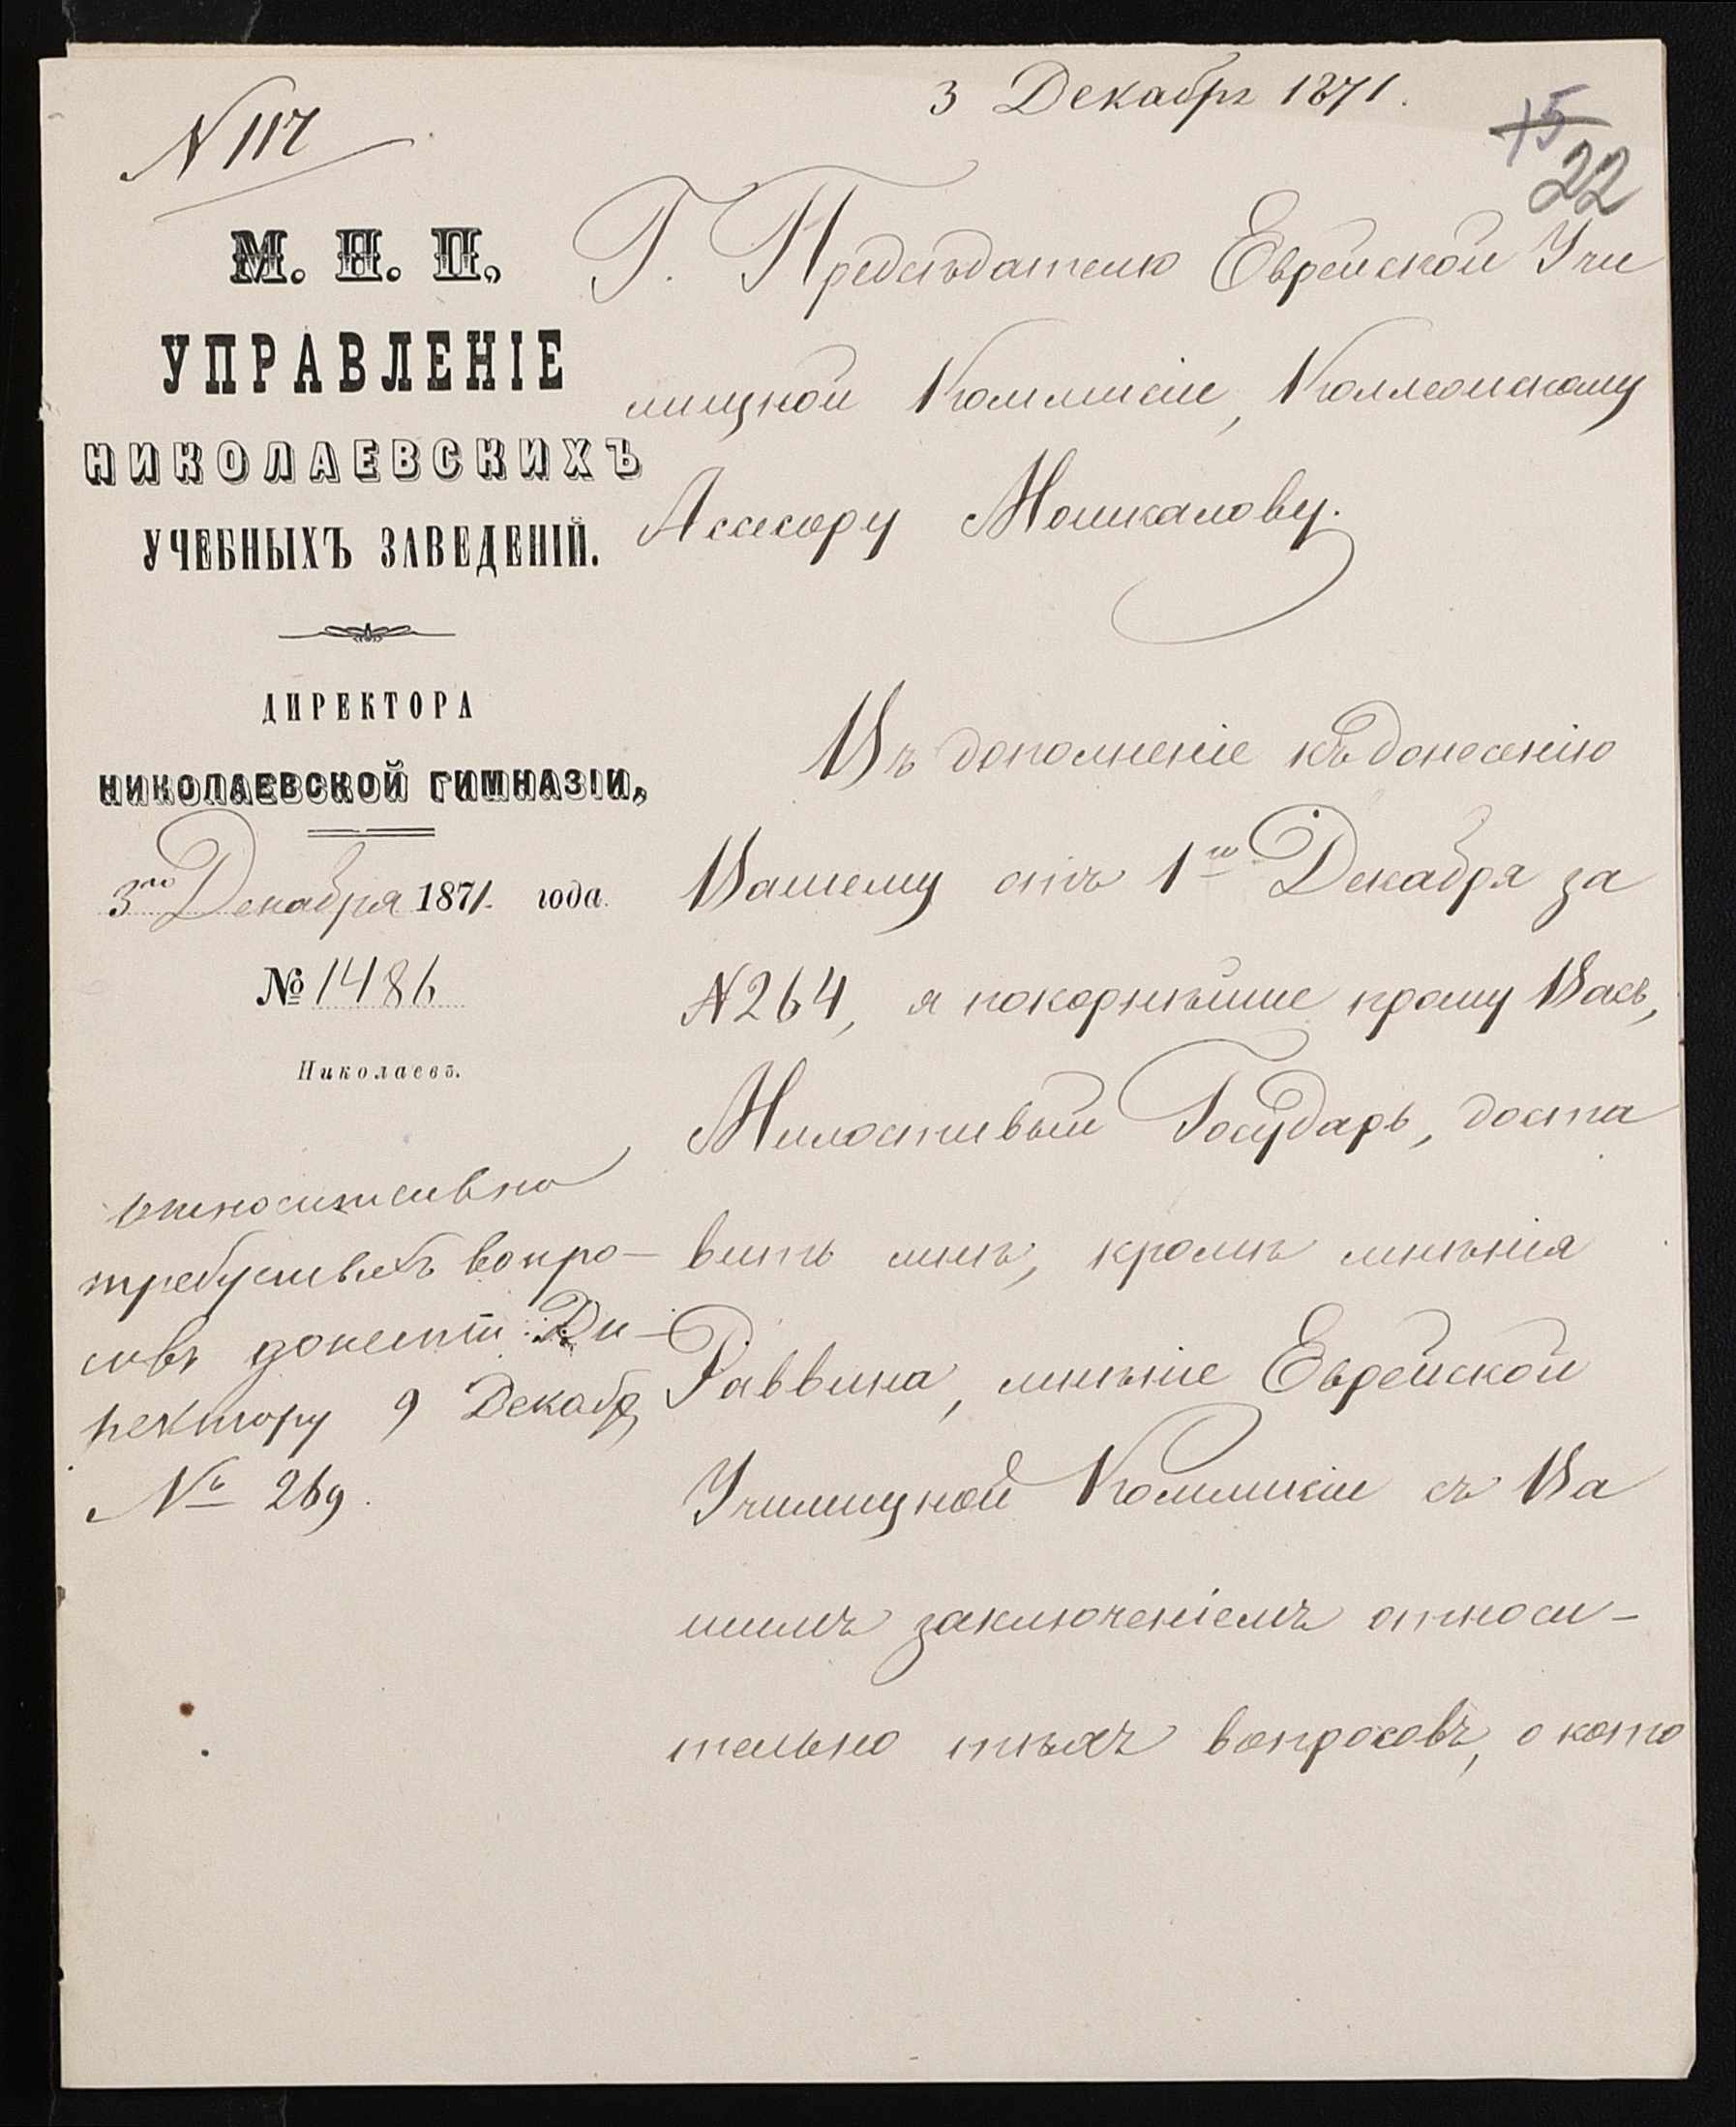 3 Декабрг 1871.
N 117
15
22
М. Н. П.
УПРАВЛЕНІЕ
НИКОЛАЕВСКИХЪ
УЧЕБНЫХЪ ЗАВЕДЕНІЙ.
ДИРЕКТОРА
НИКОЛАЕВСКОЙ ГИМНАЗІИ,
3го Декабря 1871. года.
№ 1486
Николаевъ.
относительно
требуемыхъ вопро-
совъ донести Ди-
ректору 9 Декабр
№ 269.
Г. Предсѣдателю Еврейской Учи
лищной Коммисіи, Коллежскому
Ассесору Мошкалову.
Въ дополненіе къ донесенію
Вашему отъ 1го Декабря за
N 264, я покорнѣйше прошу Васъ,
Милостивый Государь, доста
вить мнѣ, кромѣ мнѣнія
Раввина, мнѣніе Еврейской
Училищной Коммисіи съ Ва
шимъ заключеніемъ относи-
тельно тѣхъ вопросовъ, о кото